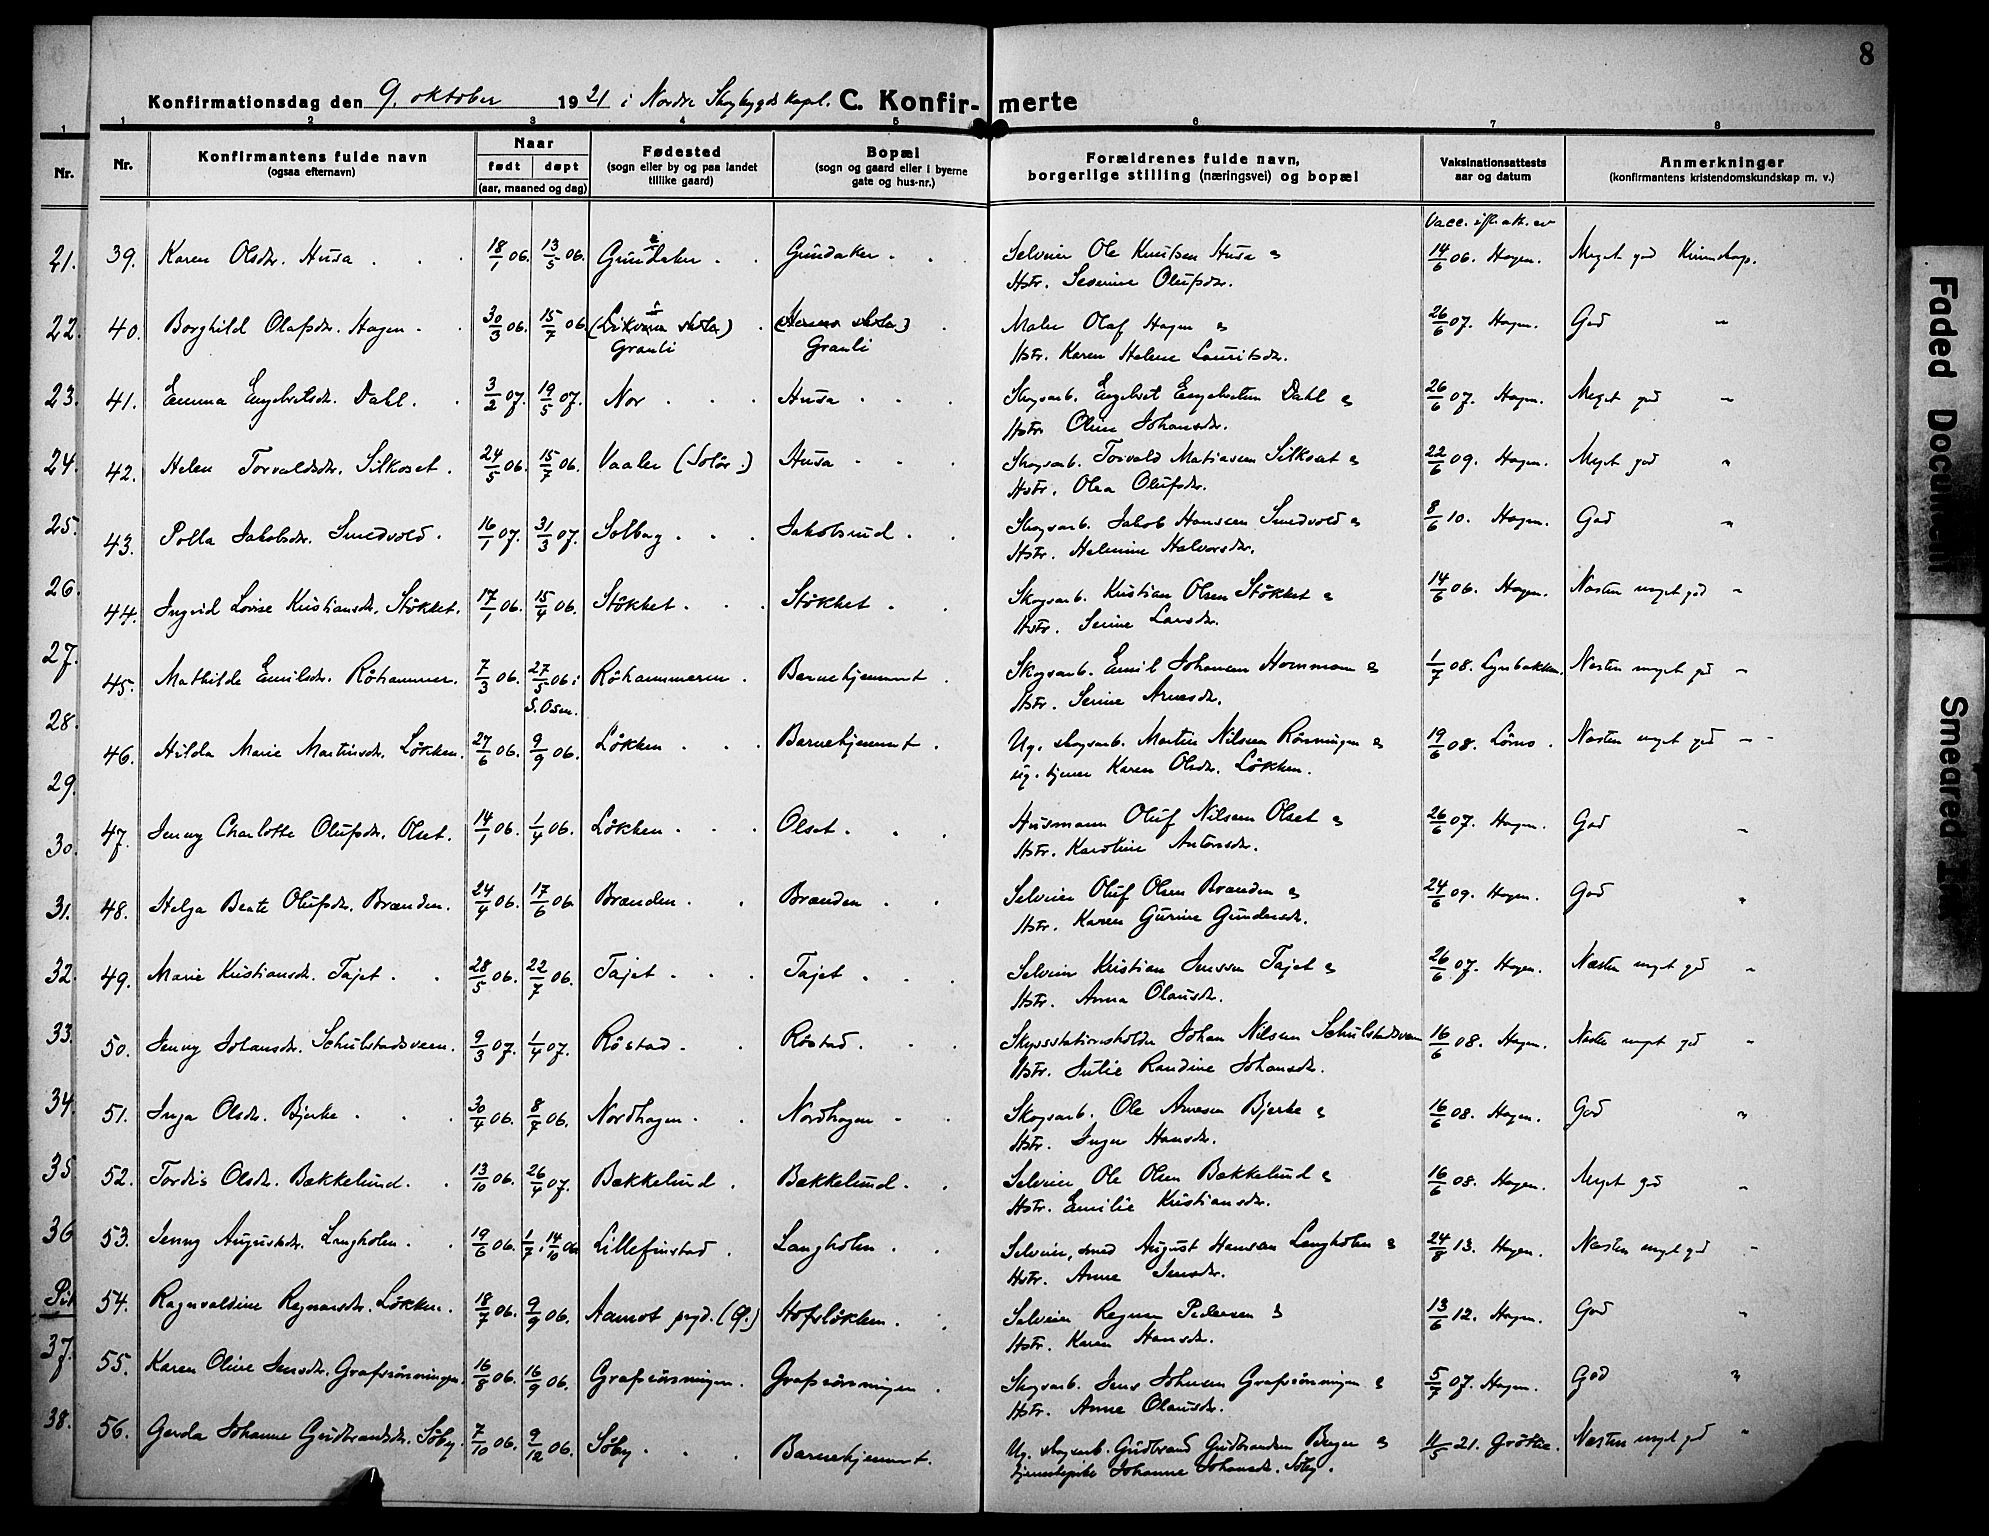 8
Konfirmationsdag den 9. oktober 1921 i Nordre Skogbygds kapl. C. Konfirmerte
1 1 2 3 4 5 6 7 8
Nr. Nr. Konfirmantens fulde navn (ogsaa efternavn)
Naar født døpt (aar, maaned og dag)
Fødested (sogn eller by og paa landet tillike gaard)
Bopæl (sogn og gaard eller i byerne gate og hus-nr.)
Forældrenes fulde navn, borgerlige stilling (næringsvei) og bopæl
Vaksinationsattests aar og datum
Anmerkninger (konfirmantens kristendomskundskap m. v.)
Vacc. ifl. att. av
21. 39. Karen Olsdr. Husa 18/1 06. 13/5 06. Gundaker Gundaker Selveier Ole Knutsen Husa & 14/6 06. Hagen. Meget god Kundskap.
Hstr. Severine Olufsdr.
22. 40. Borghild Olafsdr. Hagen 30/3 06. 15/7 06. Maler Olaf Hagen & 26/6 07. Hagen. God "
Granli Granli Hstr. Karen Helene Lauritsdr.
23. 41. Emma Engebretsdr. Dahl. 3/2 07. 19/5 07. Nor Husa Skogsarb. Engebret Engebretsen Dahl & 26/6 07. Hagen. Meget god "
Hstr. Oline Johansdr.
24. 42. Helen Torvaldsdr. Silkoset. 24/5 06. 15/7 06. Vaaler (Solør) Husa Skogsarb. Torvald Matiasen Silkoset & 22/6 09. Hagen. Meget god "
Hstr. Olea Olufsdr.
25. 43. Polla Jakobsdr. Smedvold. 16/1 07. 31/3 07. Solberg Jakobsrud Skogsarb. Jakob Hansen Smedvold & 8/6 10. Hagen. God "
Hstr. Helmine Halvorsdr.
26. 44. Ingrid Lovise Kristiansdr. Støkket. 17/1 06. 15/4 06. Støkket Støkket Skogsarb. Kristian Olsen Støkket & 14/6 06. Hagen. Næsten meget god "
Hstr. Serine Larsdr.
27. 45. Mathilde Emilsdr. Røhammer. 7/3 06. 27/5 06 i Røhammeren Barnehjemmet Skogsarb. Emil Johansen & 1/7 08. Lynbakken. Næsten meget god "
S. Osen. Hstr. Serine Arnesdr.
28. 46. Hilda Marie Martinsdr. Løkken. 27/6 06. 9/9 06. Løkken Barnehjemmet Ug. skogsarb. Martin Nilsen Rønningen & 19/6 08. Næsten meget god "
ug. tjener Karen Olsdr. Løkken.
29.
30. 47. Jenny Charlotte Olufsdr. Olset. 14/1 06. 1/4 06. Løkken Olset. Husmann Oluf Nilsen Olset & 26/6 07. Hagen. God "
Hstr. Karoline Antonsdr.
31. 48. Helga Beate Olufsdr. Brænden. 24/4 06. 17/6 06. Brænden. Brænden Selveier Oluf Olsen Brænden & 24/6 09. Hagen. God "
Hstr. Karen Gurine Gundersdr.
32. 49. Marie Kristiansdr. Tajet 28/5 06. 22/7 06. Tajet Tajet Selveier Kristian Jenssen Tajet & 26/6 07. Hagen. Næsten meget god "
Hstr. Anna Olausdr.
33. 50. Jenny Johansdr. Schulstadsveen. 9/3 07. 1/4 07. Røstad. Røstad. Skysstationsholder Johan Nilsen Schulstadsveen 16/6 08. Hagen. Næsten meget god "
Hstr. Julie Randine Johansdr.
34. 51. Inga Olsdr. Bjerke 30/4 06. 8/7 06. Nordhagen. Nordhagen Skogsarb. Ole Arnesen Bjerke & 16/6 08. Hagen. God "
Hstr. Inger Hansdr.
35 52. Tordis Olsdr. Bakkelund. 13/10 06. 26/4 07. Bakkelund Bakkelund. Selveier Ole Olsen Bakkelund & 16/6 08. Hagen. Meget god "
Hstr. Emilie Kristiansdr.
36 53. Jenny Augustsdr. Langholen. 19/6 06. 1/7, 14/10 06 Lillefinstad Langholen Selveier, smed August Hansen Langholen & 24/8 13. Hagen. Næsten meget god "
Hstr. Anne Jensdr.
54. Ragnvaldine Regnarsdr. Løkken. 18/7 06. 9/9 06. Aamot pregd. Hofsløkken. Selveier Regnar Pedersen & 13/6 12. Hagen. God "
Hstr. Karen Hansdr.
37. 55. Karen Oline Jensdr. Grafsrønningen. 16/8 06. 16/9 06. Grafsrønningen. Grafsrønningen Skogsarb. Jens Johnsen Grafsrønningen & 5/7 07. Hagen. God "
Hstr. Anne Olausdr.
38. 56. Gerda Johanne Gudbrandsdr. Søby 7/10 06. 9/12 06. Søby Barnehjemmet. Ug. skogsarb. Gudbrand Gudbrandsen Berger & 11/5 21. Grøttie. Næsten meget god "
tjenestepike Johanne Johansdr. Søby.
Faded Document
Smeared Ink